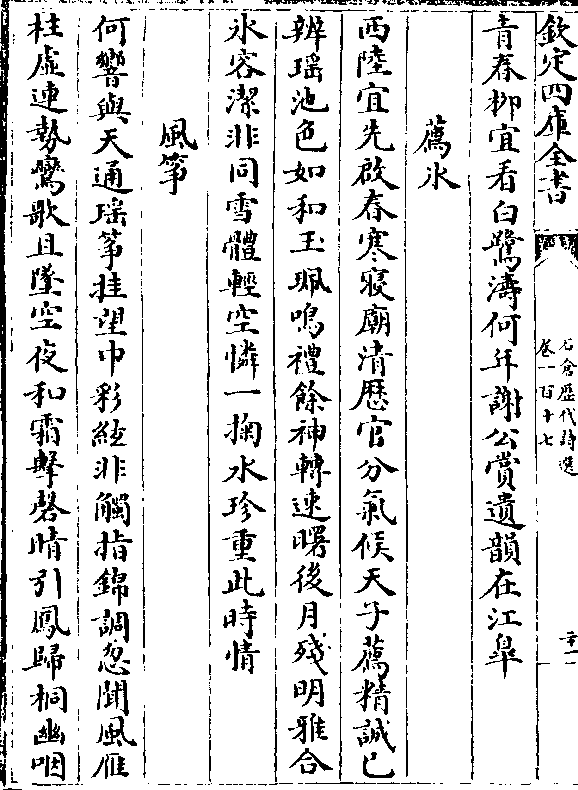 欽定四庫全書
石倉歷代詩選
卷一百十七
二十一
青春柳宜看白鷺濤何年謝公賞遺韻在江皐
薦氷
西陸宜先啟春寒寝廟清歴官分氣候天子薦精誠已
辨瑶池色如和玉珮鳴禮餘神轉速曙後月殘明雅合
氷容潔非同雪體輕空憐一掬水珍重此時情
風筝
何響與天通瑶筝挂望中彩絃非觸指錦調忽聞風雁
柱虛連勢鸞歌且墜空夜和霜擊磬晴引鳳歸桐幽咽